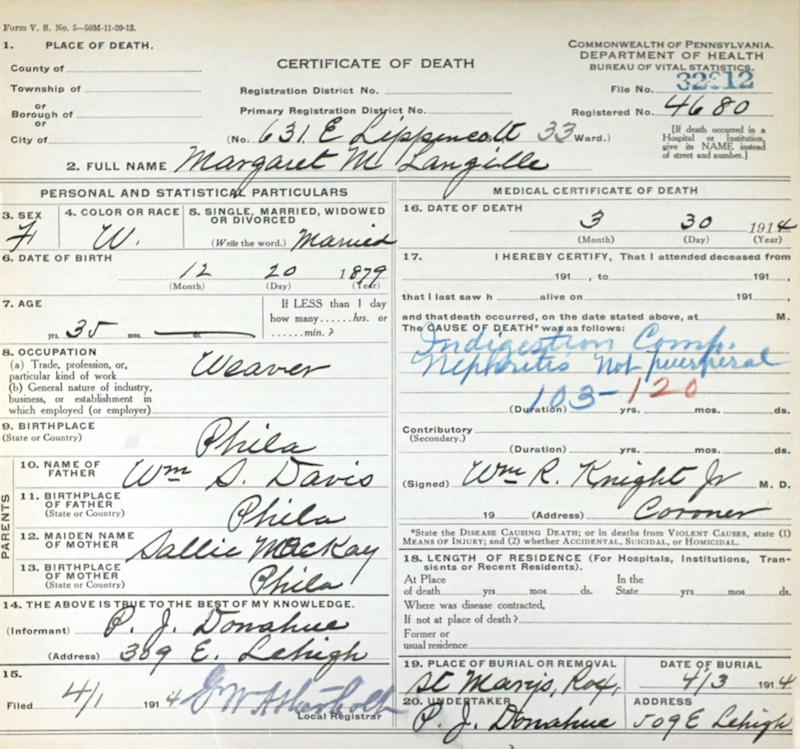 Form V. S. No. 5—50M-11-20-12.
1. PLACE OF DEATH.
County of
Township of
or
Borough of
or
City of
CERTIFICATE OF DEATH
Registration District No.
Primary Registration District No.
(No. 631 E Lippencott 33 Ward.)
COMMONWEALTH OF PENNSYLVANIA.
DEPARTMENT OF HEALTH
BUREAU OF VITAL STATISTICS.
File No. 32912
Registered No. 4680
[If death occurred in a
Hospital or Institution,
give its NAME instead
of street and number.]
2. FULL NAME Margaret M Langille
PERSONAL AND STATISTICAL PARTICULARS
3. SEX
F
4. COLOR OR RACE
W.
5. SINGLE, MARRIED, WIDOWED
OR DIVORCED
(Write the word.) Married
6. DATE OF BIRTH
12 20 1879
(Month) (Day) (Year)
7. AGE
35 yrs. mos. ds.
If LESS than 1 day
how many......hrs. or
......min. ?
8. OCCUPATION
(a) Trade, profession, or,
particular kind of work
Weaver
(b) General nature of industry,
business, or establishment in
which employed (or employer)
9. BIRTHPLACE
(State or Country)
Phila
PARENTS
10. NAME OF
FATHER
Wm S. Davis
11. BIRTHPLACE
OF FATHER
(State or Country)
Phila
12. MAIDEN NAME
OF MOTHER
Sallie MacKay
13. BIRTHPLACE
OF MOTHER
(State or Country)
Phila
14. THE ABOVE IS TRUE TO THE BEST OF MY KNOWLEDGE.
(Informant) P. J. Donahue
(Address) 309 E. Lehigh
15.
Filed 4/1 1914
Local Registrar
MEDICAL CERTIFICATE OF DEATH
16. DATE OF DEATH
3 30 1914
(Month) (Day) (Year)
17. I HEREBY CERTIFY, That I attended deceased from
191 , to 191 ,
that I last saw h alive on 191 ,
and that death occurred, on the date stated above, at M.
The CAUSE OF DEATH* was as follows:
Indigestion Comp.
Nephritis Not puerperal
103-120
(Duration) yrs. mos. ds.
Contributory
(Secondary.)
(Duration) yrs. mos. ds.
(Signed) Wm R. Knight Jr M. D.
19 (Address) Coroner
*State the DISEASE CAUSING DEATH; or in deaths from VIOLENT CAUSES, state (1)
MEANS OF INJURY; and (2) whether ACCIDENTAL, SUICIDAL, or HOMICIDAL.
18. LENGTH OF RESIDENCE (For Hospitals, Institutions, Tran-
sients or Recent Residents).
At Place In the
of death yrs mos ds. State yrs. mos ds.
Where was disease contracted,
If not at place of death ?
Former or
usual residence
19. PLACE OF BURIAL OR REMOVAL
St Marys, Rox,
DATE OF BURIAL
4/3 1914
20. UNDERTAKER
P. J. Donahue
ADDRESS
509 E Lehigh